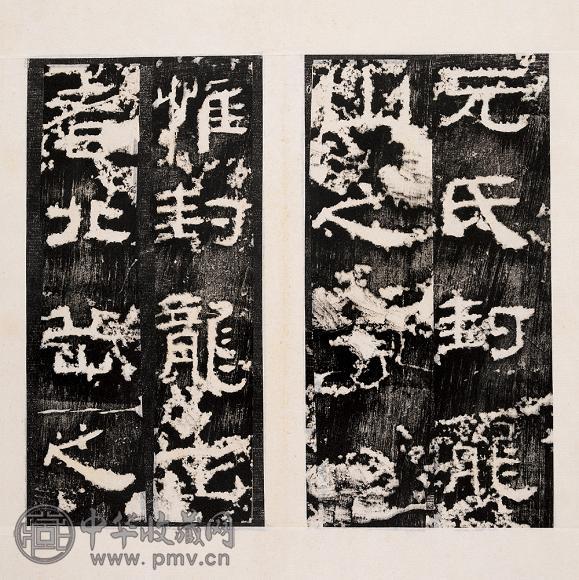 元氏封龍
山之
惟封龍山
者北岳之
中华收藏网
www.pmv.cn